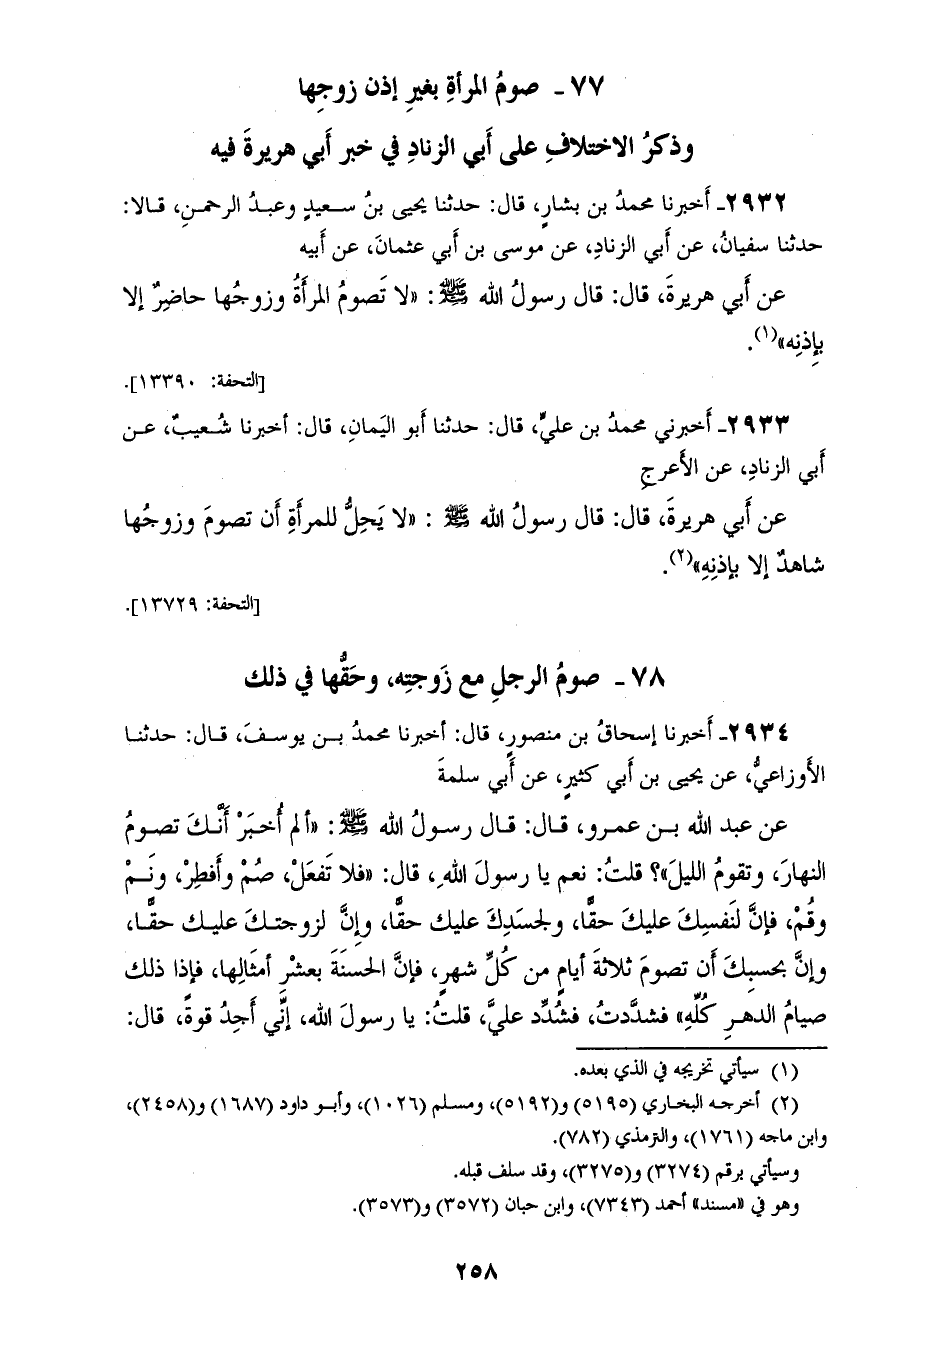 ٧٧ ـ صومُ المرأةِ بغيرِ إذن زوجِها
وذكرُ الاختلافِ على أَبي الزنادِ في خبر أَبي هريرةَ فيه
٢٩٣٢ـ أَخبرنا محمدُ بن بشارٍ، قال: حدثنا يحيى بنُ سعيدٍ وعبدُ الرحمنِ، قالا:
حدثنا سفيانُ، عن أَبي الزنادِ، عن موسى بن أَبي عثمانَ، عن أَبيه
عن أَبي هريرةَ، قال: قال رسولُ الله ﷺ: «لا تَصومُ المرأَةُ وزوجُها حاضِرٌ إلا
بإِذنِه»(١).
[التحفة: ١٣٣٩٠].
٢٩٣٣ـ أَخبرني محمدُ بن عليٍّ، قال: حدثنا أَبو اليَمانِ، قال: أخبرنا شُعيبٌ، عن
أَبي الزنادِ، عن الأَعرجِ
عن أَبي هريرةَ، قال: قال رسولُ الله ﷺ : «لا يَحِلُّ للمرأَةِ أَن تصومَ وزوجُها
شاهدٌ إلا بإِذنِهِ»(٢).
[التحفة: ١٣٧٢٩].
٧٨ ـ صومُ الرجلِ مع زَوجتِه، وحَقُّها في ذلك
٢٩٣٤ـ أَخبرنا إسحاقُ بن منصورٍ، قال: أخبرنا محمدُ بن يوسفَ، قال: حدثنا
الأَوزاعيُّ، عن يحيى بن أَبي كثيرٍ، عن أَبي سلمةَ
عن عبد الله بن عمرو، قال: قال رسولُ الله ﷺ: «ألم أُخبَرْ أَنَّكَ تصومُ
النهارَ، وتقومُ الليلَ»؟ قلتُ: نعم يا رسولَ اللهِ، قال: «فلا تَفعَلْ، صُمْ وأَفطِرْ، ونَمْ
وقُمْ، فإنَّ لنَفسِكَ عليكَ حقًّا، ولجسَدِكَ عليك حقًّا، وإنَّ لزوجتكَ عليك حقًّا،
وإنَّ بحسبِكَ أَن تصومَ ثلاثةَ أيامٍ من كُلِّ شهرٍ، فإنَّ الحسنَةَ بعشْرِ أمثَالِها، فإذا ذلك
صيامُ الدهرِ كُلِّهِ» فشدَّدتُ، فشُدِّد عليَّ، قلتُ: يا رسولَ الله، إنِّي أَجِدُ قوةً، قال:
(١) سيأتي تخريجه في الذي بعده.
(٢) أخرجه البخاري (٥١٩٥) و(٥١٩٢)، ومسلم (١٠٢٦)، وأبو داود (١٦٨٧) و(٢٤٥٨)،
وابن ماجه (١٧٦١)، والترمذي (٧٨٢).
وسيأتي برقم (٣٢٧٤) و(٣٢٧٥)، وقد سلف قبله.
وهو في «مسند» أحمد (٧٣٤٣)، وابن حبان (٣٥٧٢) و(٣٥٧٣).
٢٥٨